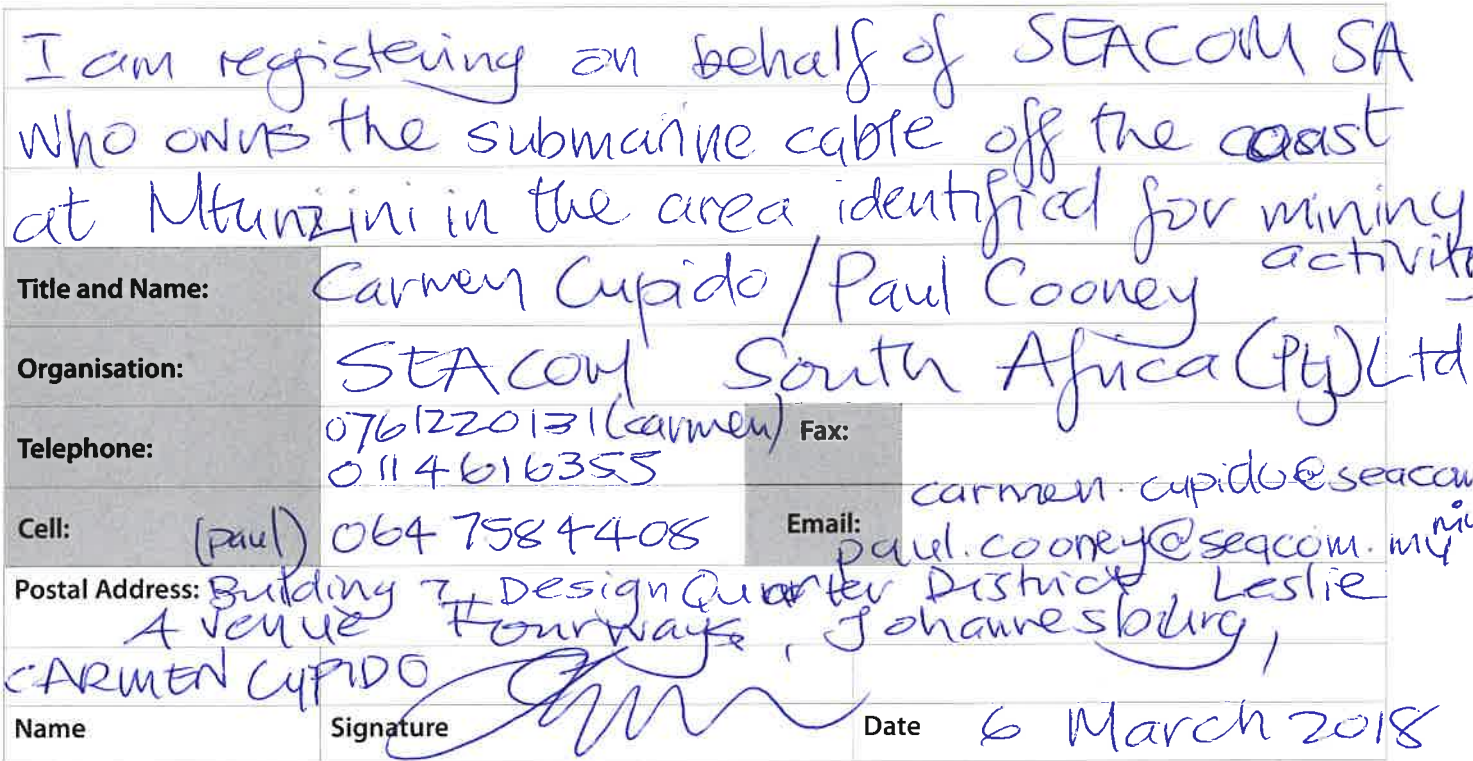 I am registering on behalf of SEACOM SA
who owns the submarine cable off the coast
at Mtunzini in the area identified for mining
activity
Title and Name: Carmen Cupido / Paul Cooney
Organisation: SEACOM South Africa (Pty) Ltd
Telephone: 0761220131 (carmen)
0114616355
Fax:
Cell: (paul) 064 7584408
Email: carmen.cupido@seacom.mu
paul.cooney@seacom.mu
Postal Address: Building 7, Design Quarter District, Leslie
Avenue Fourways, Johannesburg,
CARMEN CUPIDO
Name Signature Date 6 March 2018